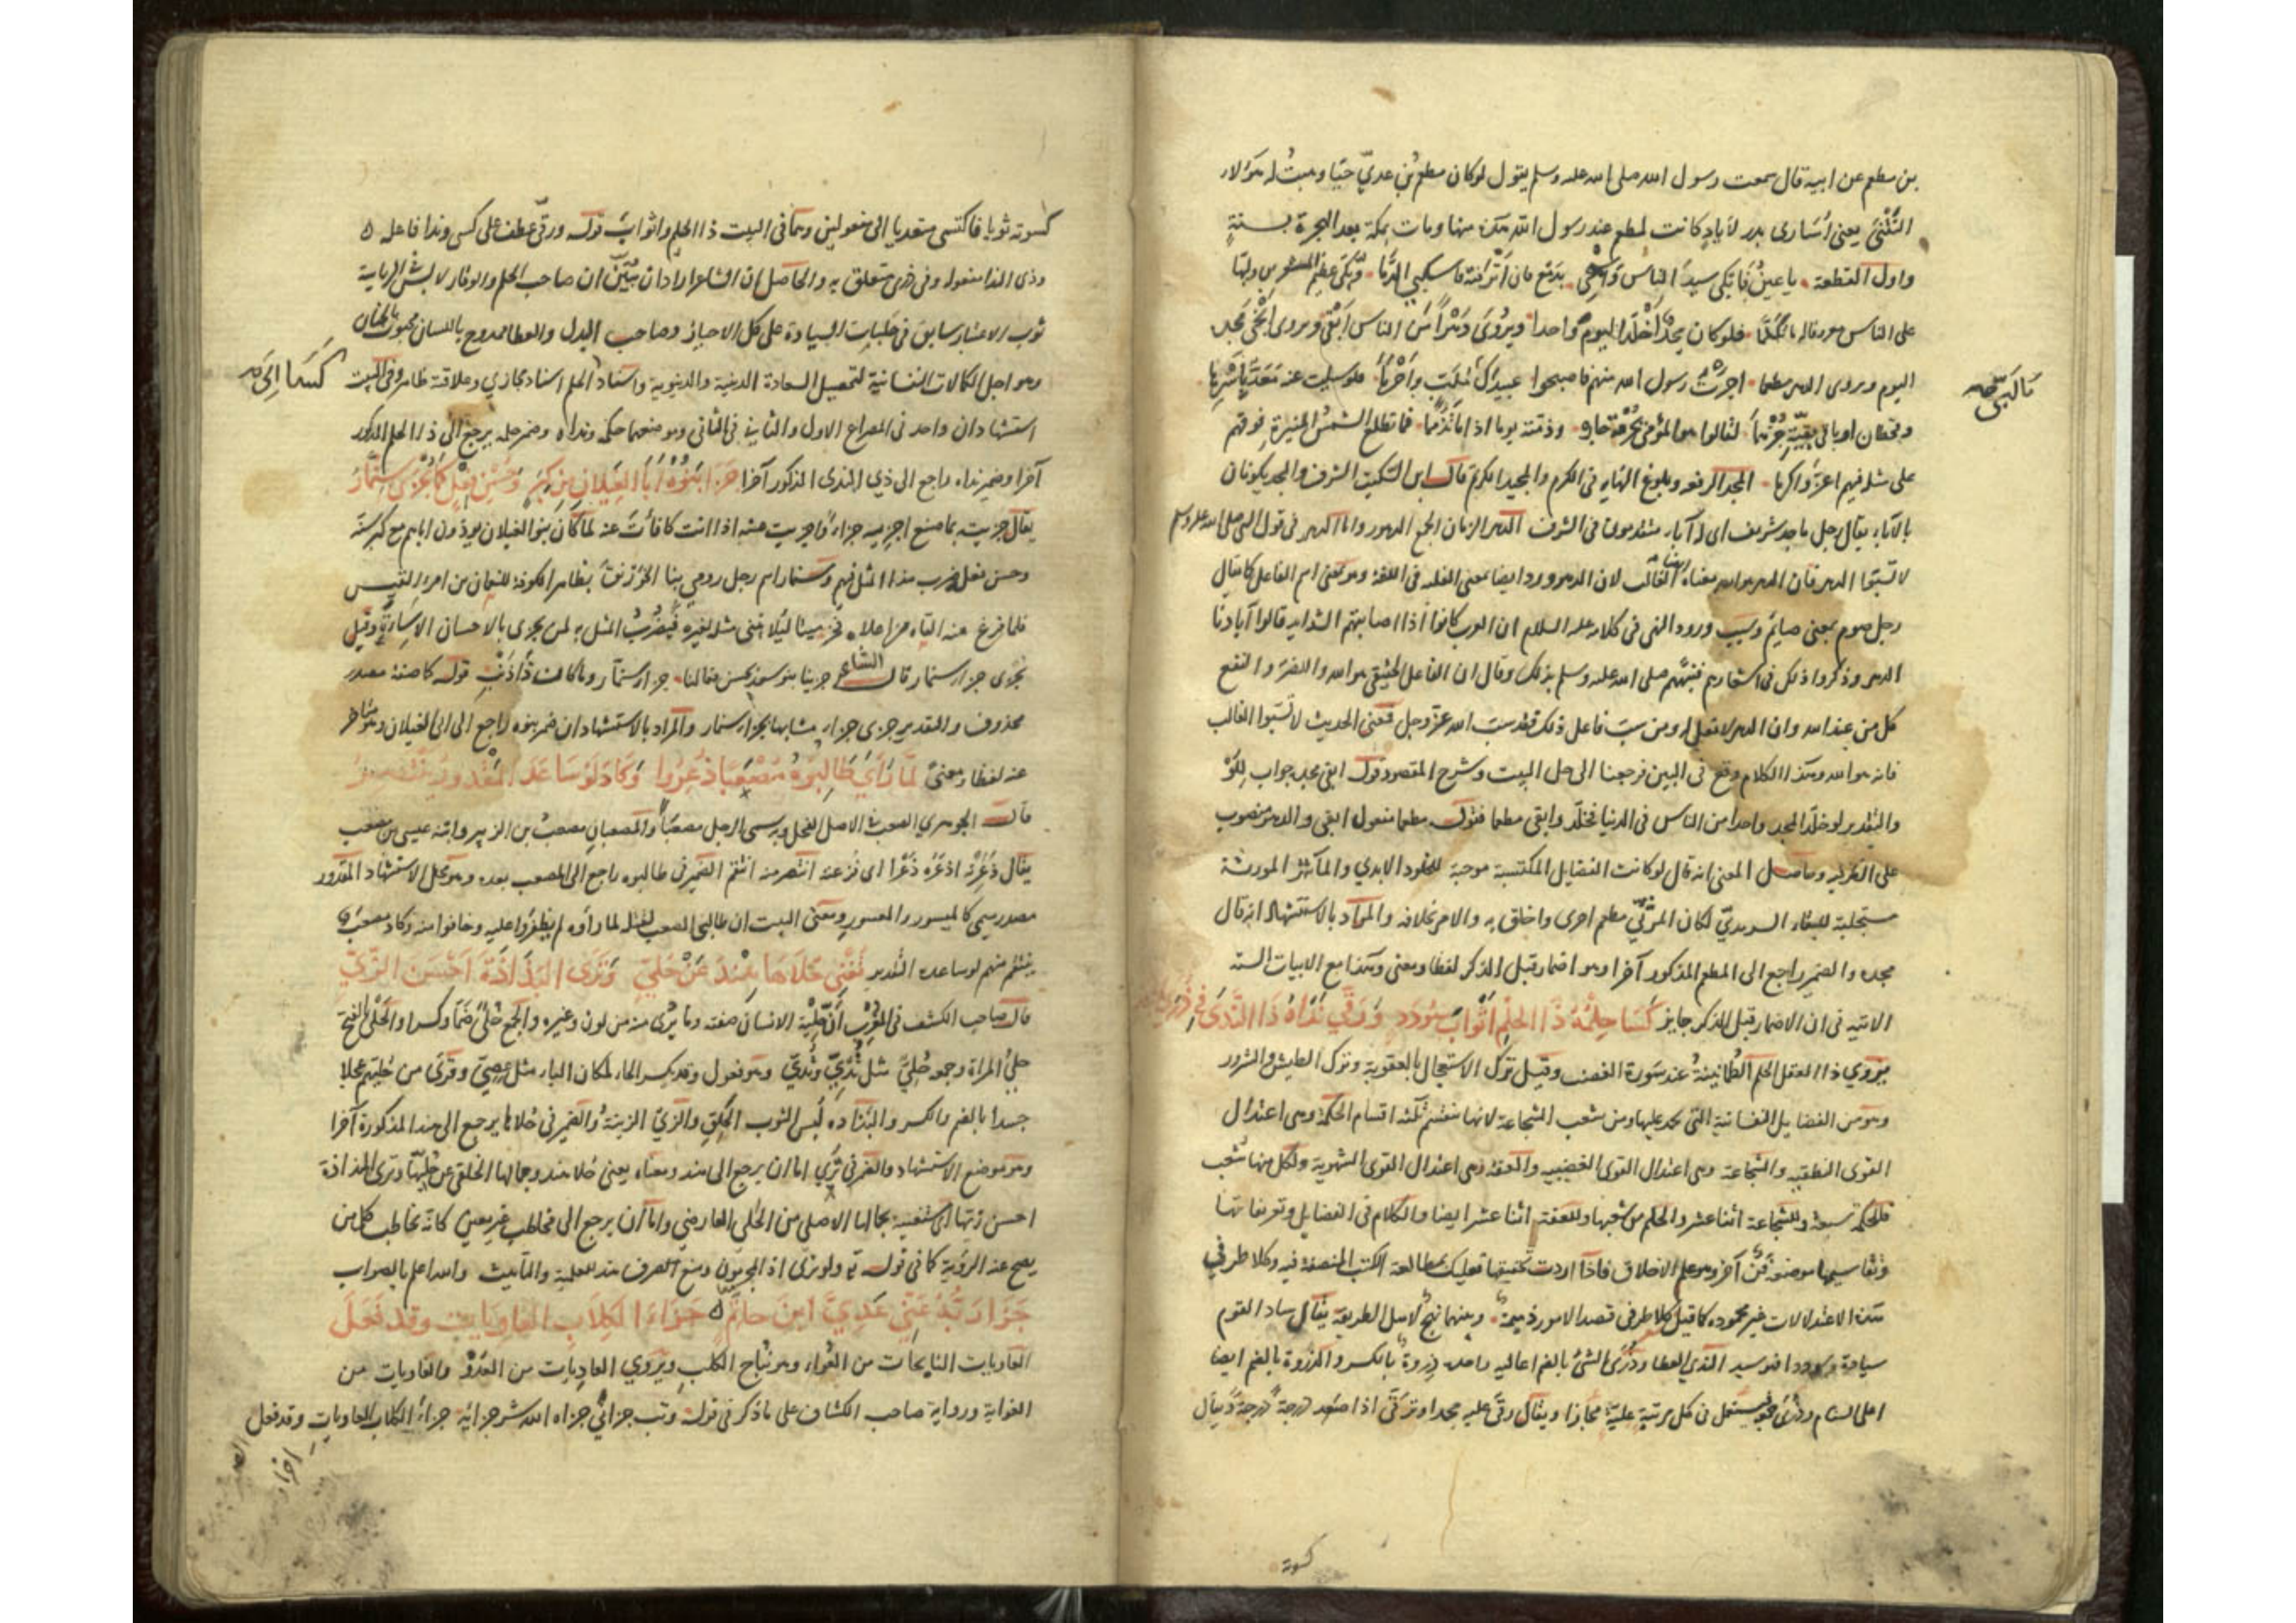 بن مطعم عن ابيه قال سمعت رسول الله صلى الله عليه وسلم يقول لوكان مطعم بن عدي حيا وهبت له هؤلاء
النتنى يعنى اسارى بدر لاياد كانت لمطعم عند رسول الله هذه منها ومات بمكة بعد الهجرة بسنة
واول القطعة يا عين فابكى سيد الناس واسفحى بدمع فان انزفته فاسكبي الدما وبكى عظيم المشعرين وربها
على الناس معروفا له ما تكلما فلوكان مجد اخلد اليوم واحدا ويروى دهرا من الناس ابقى ويروى انجى مجده
اليوم ويروى الدهر مطعما اجرت رسول الله منهم فاصبحوا عبيدك ملبٍ واحرما فلو سئلت عنه معد باسرها
وقحطان او باقى بقية جرهما لقالوا هو الموفى بخفرة جاره وذمته يوما اذا ما تذمما فما تطلع الشمس المنيرة فوقهم
على مثله فيهم اعز واكرما المجد الرفعة وبلوغ النهاية فى الكرم والمجيد الكريم قال ابن السكيت الشرف والمجد يكونان
بالآباء يقال رجل ماجد شريف اى له آباء متقدمون فى الشرف الدهر الزمان الجمع الدهور واما الدهر فى قول النبي صلى الله عليه وسلم
لا تسبوا الدهر فان الدهر هو الله معناه الغالب لان الدهر ورد ايضا بمعنى الغلبة فى اللغة وهو بمعنى اسم الفاعل كما يقال
رجل صوم بمعنى صائم وسبب ورود النهى فى كلامه عليه السلام ان العرب كانوا اذا اصابتهم الشدايد قالوا ابادنا
الدهر وذكروا ذلك فى اشعارهم فنبههم صلى الله عليه وسلم بذلك وقال ان الفاعل الحقيقى هو الله والضر والنفع
كل من عند الله وان الدهر لا فعل له ومن سب فاعل ذلك فقد سب الله عز وجل فمعنى الحديث لا تسبوا الغالب
فانه هو الله وهذا الكلام وقع فى البين فرجعنا الى حل البيت وشرح المقصود قوله ابقى مجده جواب للو
والتقدير لو خلد المجد واحدا من الناس فى الدنيا لخلد وابقى مطعما فقوله مطعما مفعول ابقى والدهر منصوب
على الظرفية وحاصل المعنى انه قال لوكانت الفضايل المكتسبة موجبة للخلود الابدي والمآثر المورثة
مستجلبة للبقاء السرمدي لكان المرثي مطعم احرى واخلق به والامر بخلافه والمراد بالاستشهاد انه قال
مجده والضمير راجع الى المطعم المذكور آخرا وهو اضمار قبل الذكر لفظا ومعنى وهذا مع الابيات الستة
الاتية فى ان الاضمار قبل الذكر جايز كسا حلمه ذا الحلم اثواب سودد ورقى نداه ذا الندى فى ذرى المجد
ويروي ذا العقل الحلم الطمانينة عند سورة الغضب وقيل ترك الاستعجال بالعقوبة وترك الطيش والشرور
وهو من الفضايل النفسانية التى يحمد عليها ومن شعب الشجاعة لانها منقسم ثلثة اقسام الحكمة وهى اعتدال
القوى النطقية والشجاعة وهى اعتدال القوى الغضبية والعفة وهى اعتدال القوى الشهوية ولكل منها شعب
فللحكمة تسعة وللشجاعة اثنا عشر والحلم من شعبها وللعفة اثنا عشر ايضا والكلام فى الفضايل وتعريفاتها
وتقاسيمها موضعه فن آخر وهو علم الاخلاق فاذا اردت تحقيقها فعليك بمطالعة الكتب المصنفة فيه وكلا طرفي
هذه الاعتدالات غير محموده كما قيل كلا طرفى قصد الامور ذميمة وبينهما نهج لاهل الطريقة يقال ساد القوم
سيادة وسوددا فهو سيد الندى العطا وذرى الشئ بالضم اعاليه واحده ذروة بالكسر والذروة بالضم ايضا
اعلى السنام وذرى فيستعمل فى كل مرتبة علية مجازا ويقال رقى عليه مجدا وترقى اذا صعد درجة درجة ويقال
كسوته
كسوته ثوبا فاكتسى متعديا الى مفعولين وهما فى البيت ذا الحلم واثواب قوله ورقى عطف على كسى وندا فاعله
وذى الندا مفعوله وفى ذرى متعلق به والحاصل ان الشاعر اراد ان يبين ان صاحب الحلم والوقار لابس
ثوب الاعتبار سابق فى حلبات السيادة على كل الاحبار وصاحب البذل والعطا ممدوح باللسان محبوب بالجنان
وهو اجل الكمالات النفسانية لتحصيل السعادة الدينية والدنيوية واسناد الحلم اسناد مجازي وعلاقته ظاهر وفى البيت
استشهادان واحد فى المصراع الاول والثانى فى الثانى وهو منهما حلمه ونداه وضمير حلمه يرجع الى ذا الحلم المذكور
آخرا وضمير نداه راجع الى ذي الندى المذكور آخرا جزا بنوه ابا الغيلان عن كبر وحسن فعل كما يجزى سنمار
يقال جزيته بما صنع اجزيه جزاء واجزيت عنه اذا انت كافأت عنه لما كان بنو الغيلان يوذون اباهم مع كبر سنه
وحسن فعل ضرب هذا المثل فيهم وسنمار اسم رجل رومي بنا الخورنق بظاهر الكوفة للنعمان بن امرء القيس
فلما فرغ منه القاه من اعلاه فخر ميتا ليلا يبنى مثله لغيره فيضرب المثل به لمن يجزى بالاحسان الاساءة وقيل
يجزى جزاء سنمار قال الشاعر جزينا بنو سعد بحسن فعالنا جزاء سنمار وما كان ذا ذنب قوله كما صفة مصدر
محذوف والتقدير جزى جزاء مشابها بجزاء سنمار والمراد بالاستشهاد ان ضمير بنوه راجع الى ابى الغيلان وهو متاخر
عنه لفظا ومعنى لما راى طالبوه مصعبا ذعروا وكاد لو ساعد المقدور ينتصر
قال الجوهري المصعب فى الاصل الفحل وبه سمى الرجل مصعبا والمصعبان مصعب بن الزبير وابنه عيسى بن مصعب
يقال ذعرته اذعره ذعرا اى فزعته انتصر منه انتقم الضمير فى طالبوه راجع الى المصعب بعده وهو محل الاستشهاد المقدور
مصدر ميمى كالميسور والمعسور ومعنى البيت ان طالبى المصعب لقتله لما راوه لم يظفروا عليه وخافوا منه وكاد مصعب
ينتقم منهم لو ساعده التقدير تغنى حلاها هند عن حلي وترى البذاذة احسن الزي
قال صاحب الكشف فى المغرب ان حلية الانسان صفته وما يرى منه من لون وغيره والجمع حلى ضما وكسرا والحلى بالفتح
حلي المراة وجمعه حلي مثل ثدي وثدي وهو فعول وقد يكسر الحاء لمكان الياء مثل عصي وقرئ من حليهم عجلا
جسدا بالضم والكسر والبذاذة لبس الثوب الخلق والزي الزينة والضمير فى حلاها يرجع الى هند المذكورة آخرا
وهو موضع الاستشهاد والضمير فى ترى اما ان يرجع الى هند ومعناه يعنى حلا هند وجمالها الخلقى عن حليها وترى البذاذة
احسن زيها اى مستغنية بجمالها الاصلى من الحلى العارضي واما ان يرجع الى مخاطب غير معين كانه يخاطب كل من
يصح عنه الرؤية كما فى قوله تع ولو ترى اذ المجرمون ومنع الصرف هند للعلمية والتأنيث والله اعلم بالصواب
جزا ربه عني عدي ابن حاتم جزاء الكلاب العاويات وقد فعل
العاويات النابحات من العواء وهو نباح الكلب ويروي العاديات من العدو والغاويات من
الغواية ورواية صاحب الكشاف على ما ذكر فى قوله وتب جزانى جزاه الله شر جزائه جزاء الكلاب العاويات وقد فعل